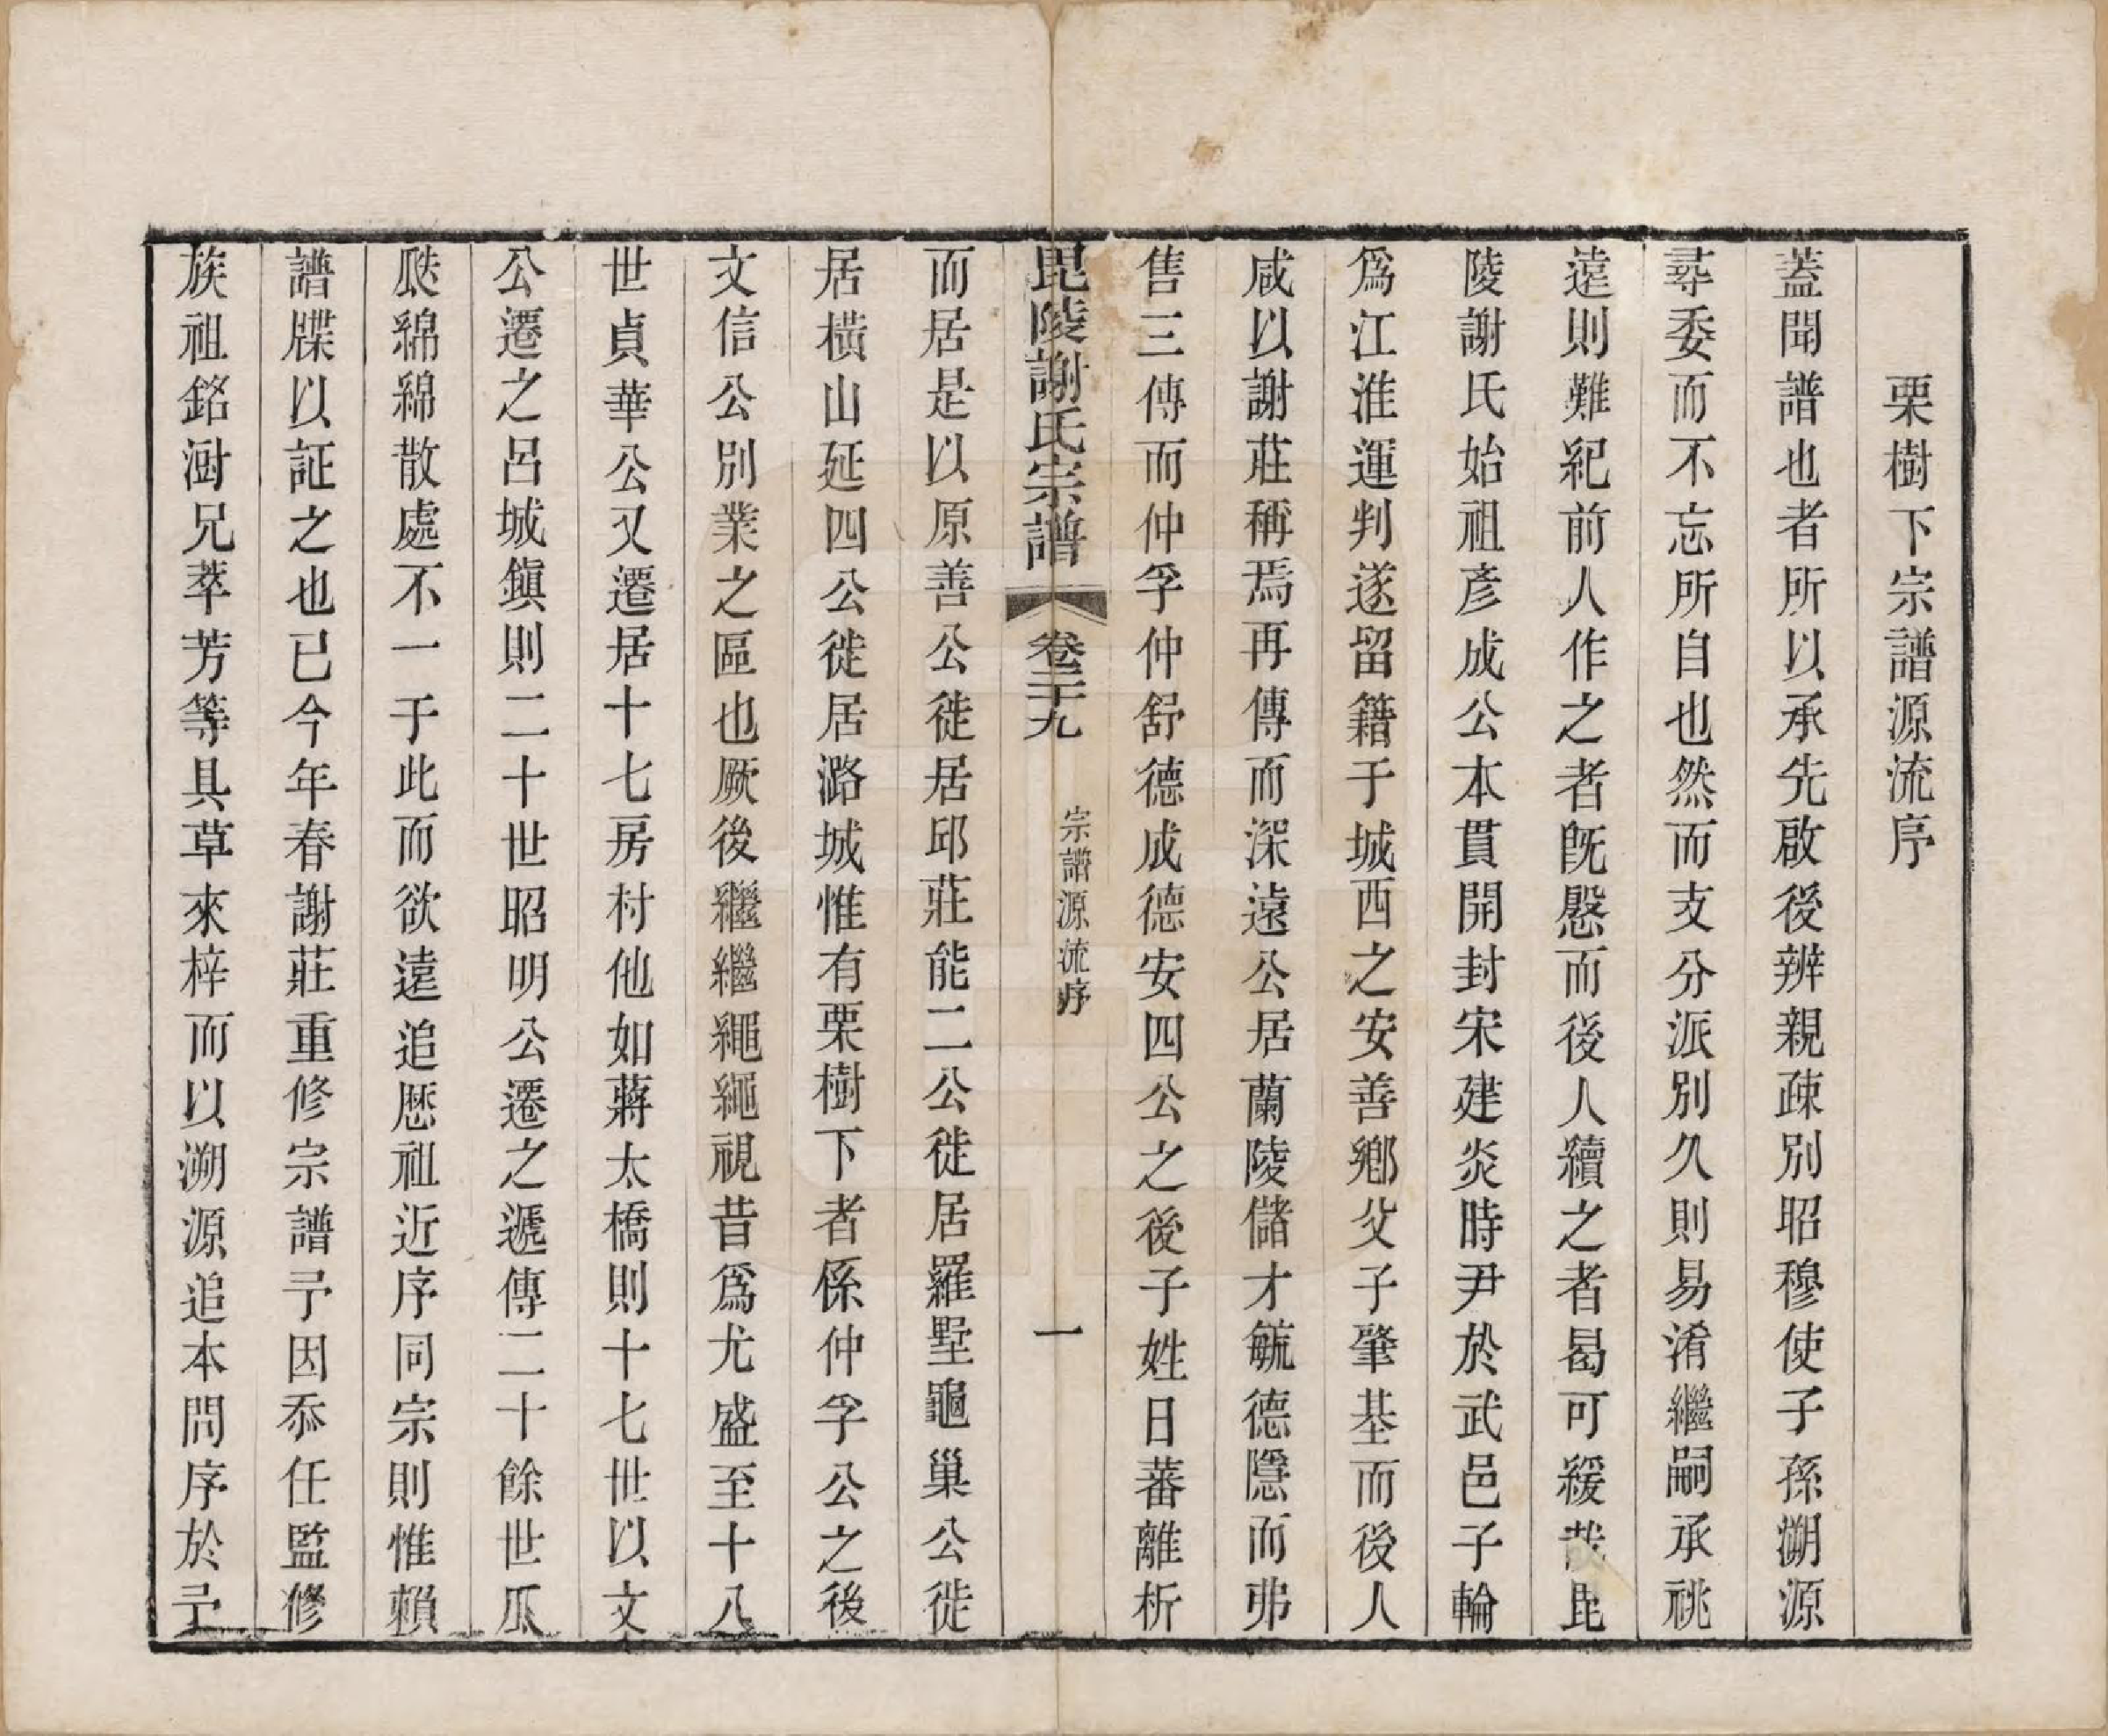 栗樹下宗譜源流序
蓋聞譜也者所以承先啟後辨親疎別昭穆使子孫溯源
尋委而不忘所自也然而支分派別久則易淆繼嗣承祧
遠則難紀前人作之者旣慇而後人續之者曷可緩哉毘
陵謝氏始祖彥成公本貫開封宋建炎時尹於武邑子輪
爲江淮運判遂留籍于城西之安善鄉父子肇基而後人
咸以謝莊稱焉再傳而深遠公居蘭陵儲才毓德隱而弗
售三傳而仲孚仲舒德成德安四公之後子姓日蕃離析
毘陵謝氏宗譜 卷二十九 宗譜源流序 一
而居是以原善公徙居邱莊能二公徙居羅墅龜巢公徙
居橫山延四公徙居潞城惟有栗樹下者係仲孚公之後
文信公別業之區也厥後繼繼繩繩視昔爲尤盛至十八
世貞華公又遷居十七房村他如蔣太橋則十七世以文
公遷之呂城鎭則二十世昭明公遷之遞傳二十餘世瓜
瓞綿綿散處不一于此而欲遠追厯祖近序同宗則惟賴
譜牒以証之也已今年春謝莊重修宗譜予因忝任監修
族祖銘澍兄萃芳等具草來梓而以溯源追本問序於予